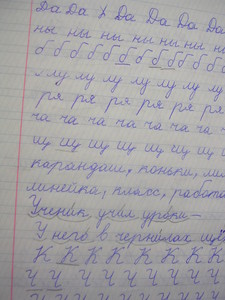 Да Да Х Да Да Да Да
ны ны ны ны ны ны
б б б б б б б б б б б
лу лу лу лу лу лу
ря ря ря ря ря ря
ча ча ча ча ча ча
щ щ щ щ щ щ щ
карандаш, коньки,
линейка, класс, работа
Ученик учил уроки –
У него в чернилах щё
К К К К К К К К
Ч Ч Ч Ч Ч Ч Ч Ч